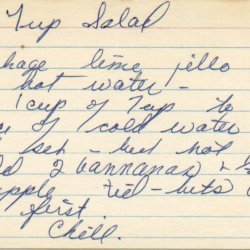 7up Salad
kage lime jello
hot water -
1 cup of 7up to
of cold water
set - but not
2 bannanas &
apple tid-bits
first.
Chill.